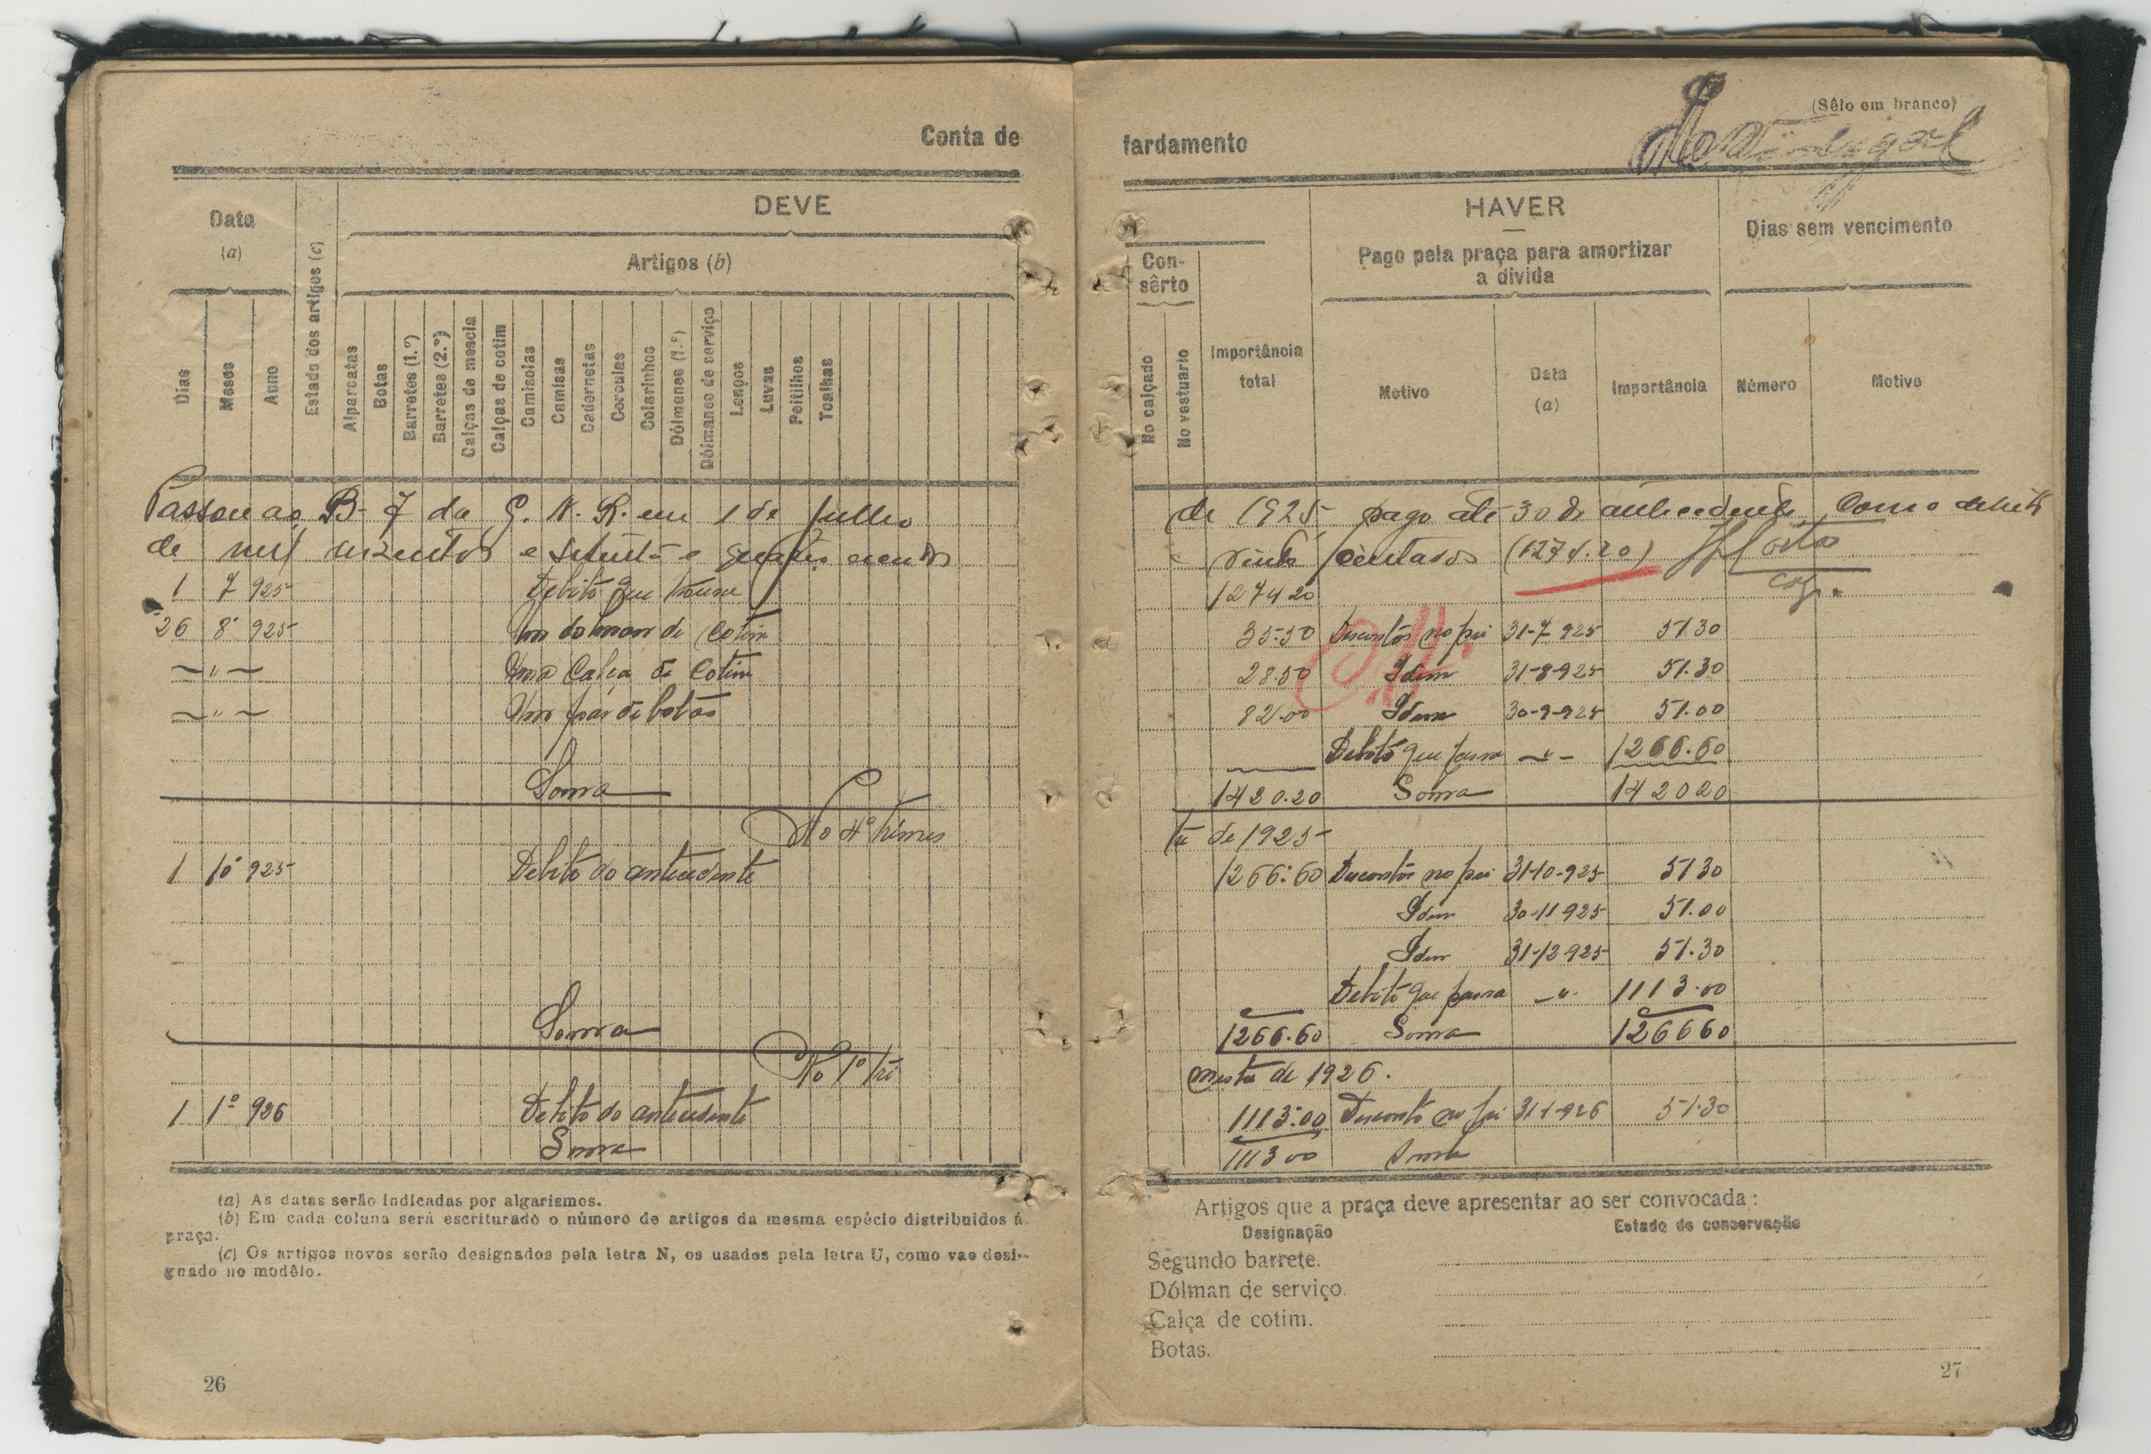 Conta de
DEVE
Data
(a)
Artigos (b)
Dias
Meses
Anno
Estado dos artigos (c)
Alparcatas
Botas
Barretes (1.º)
Barretes (2.º)
Calças de mescla
Calças de cotim
Camisolas
Camisas
Cadernetas
Ceroulas
Colarinhos
Dólmanes (1.º)
Dólmanes de serviço
Lenços
Luvas
Peitilhos
Toalhas
Passou ao B. 7 da G. N. R. em 1 de Julho
de mil duzentos e setenta e quatro escudos
1 7 925 Debito que trouxe
26 8 925 Um dolman de Cotim
— " — Uma Calça de Cotim
— " — Um par de botas
Soma
No 4º trimes
1 10 925 Debito do antecedente
Soma
No 1º tri
1 1º 926 Debito do antecedente
Soma
(a) As datas serão indicadas por algarismos.
(b) Em cada coluna será escriturado o número de artigos da mesma espécie distribuidos á
praça.
(c) Os artigos novos serão designados pela letra N, os usados pela letra U, como vae desi-
gnado no modêlo.
26
fardamento
(Sêlo em branco)
HAVER
Pago pela praça para amortizar
a divida
Dias sem vencimento
Con-
sêrto
No calçado
No vestuario
Importância
total
Motivo
Data
(a)
Importância
Número
Motivo
de 1925 pago até 30 do antecedente Com o debito
vinte centavos (1274.20)
1274 20
35.50 Descontos no pré 31-7-925 51 30
28.50 Idem 31-8-925 51.30
82.00 Idem 30-9-925 51.00
Debito que passa — " — 1266.60
1420.20 Soma 1420 20
tre de 1925
1266.60 Descontos no pré 31-10-925 51 30
Idem 30-11-925 51.00
Idem 31-12-925 51.30
Debito que passa — " 1113.00
1266.60 Soma 1266 60
mestre de 1926.
1113.00 Desconto no pré 31-1-926 51.30
1113 00 Soma
Artigos que a praça deve apresentar ao ser convocada:
Designação Estado de conservação
Segundo barrete.
Dólman de serviço.
Calça de cotim.
Botas.
27